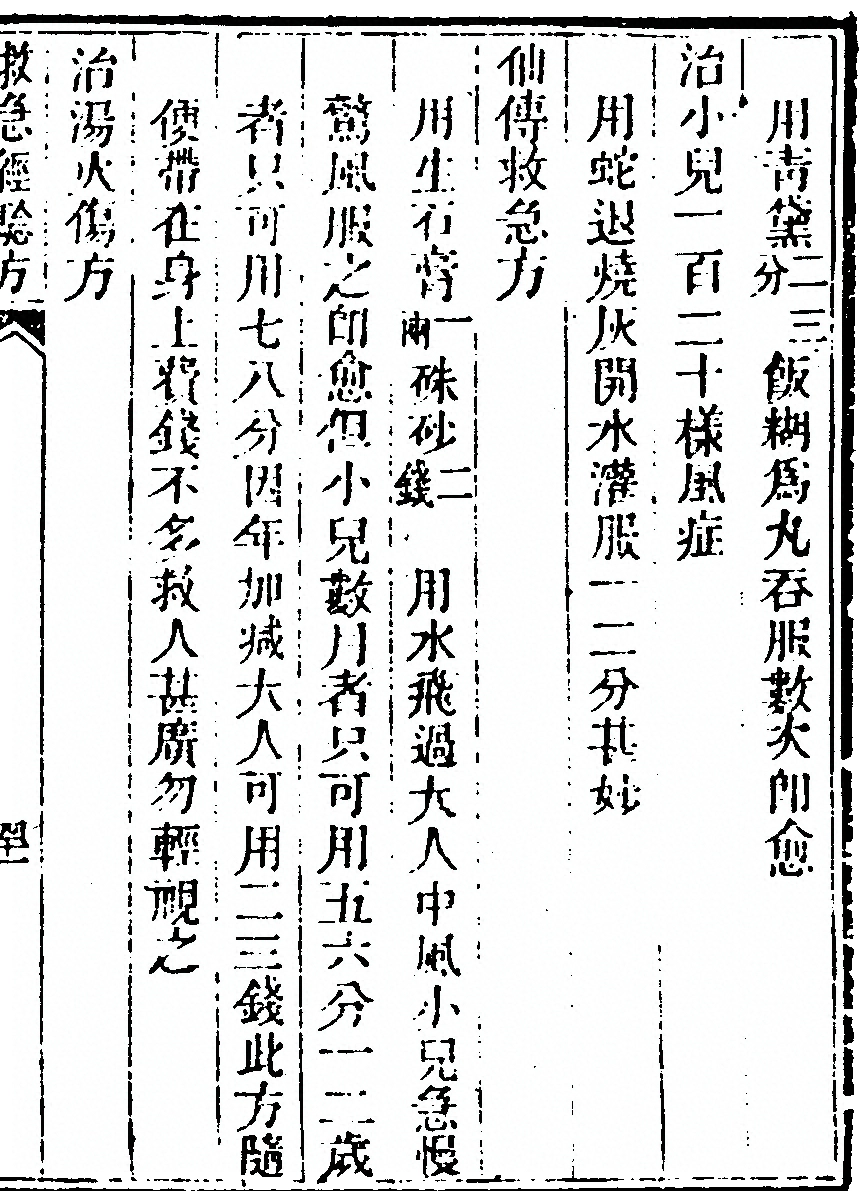 用青黛二三分飯糊為丸吞服數次卽愈
治小兒一百二十樣風症
用蛇退燒灰開水灌服一二分甚妙
仙傳救急方
用生石膏一兩硃砂二錢 用水飛過大人中風小兒急慢
驚風服之卽愈但小兒數月者只可用五六分一二歲
者只可用七八分因年加減大人可用二三錢此方隨
便帶在身上費錢不多救人甚廣勿輕視之
治湯火傷方
救急經驗方